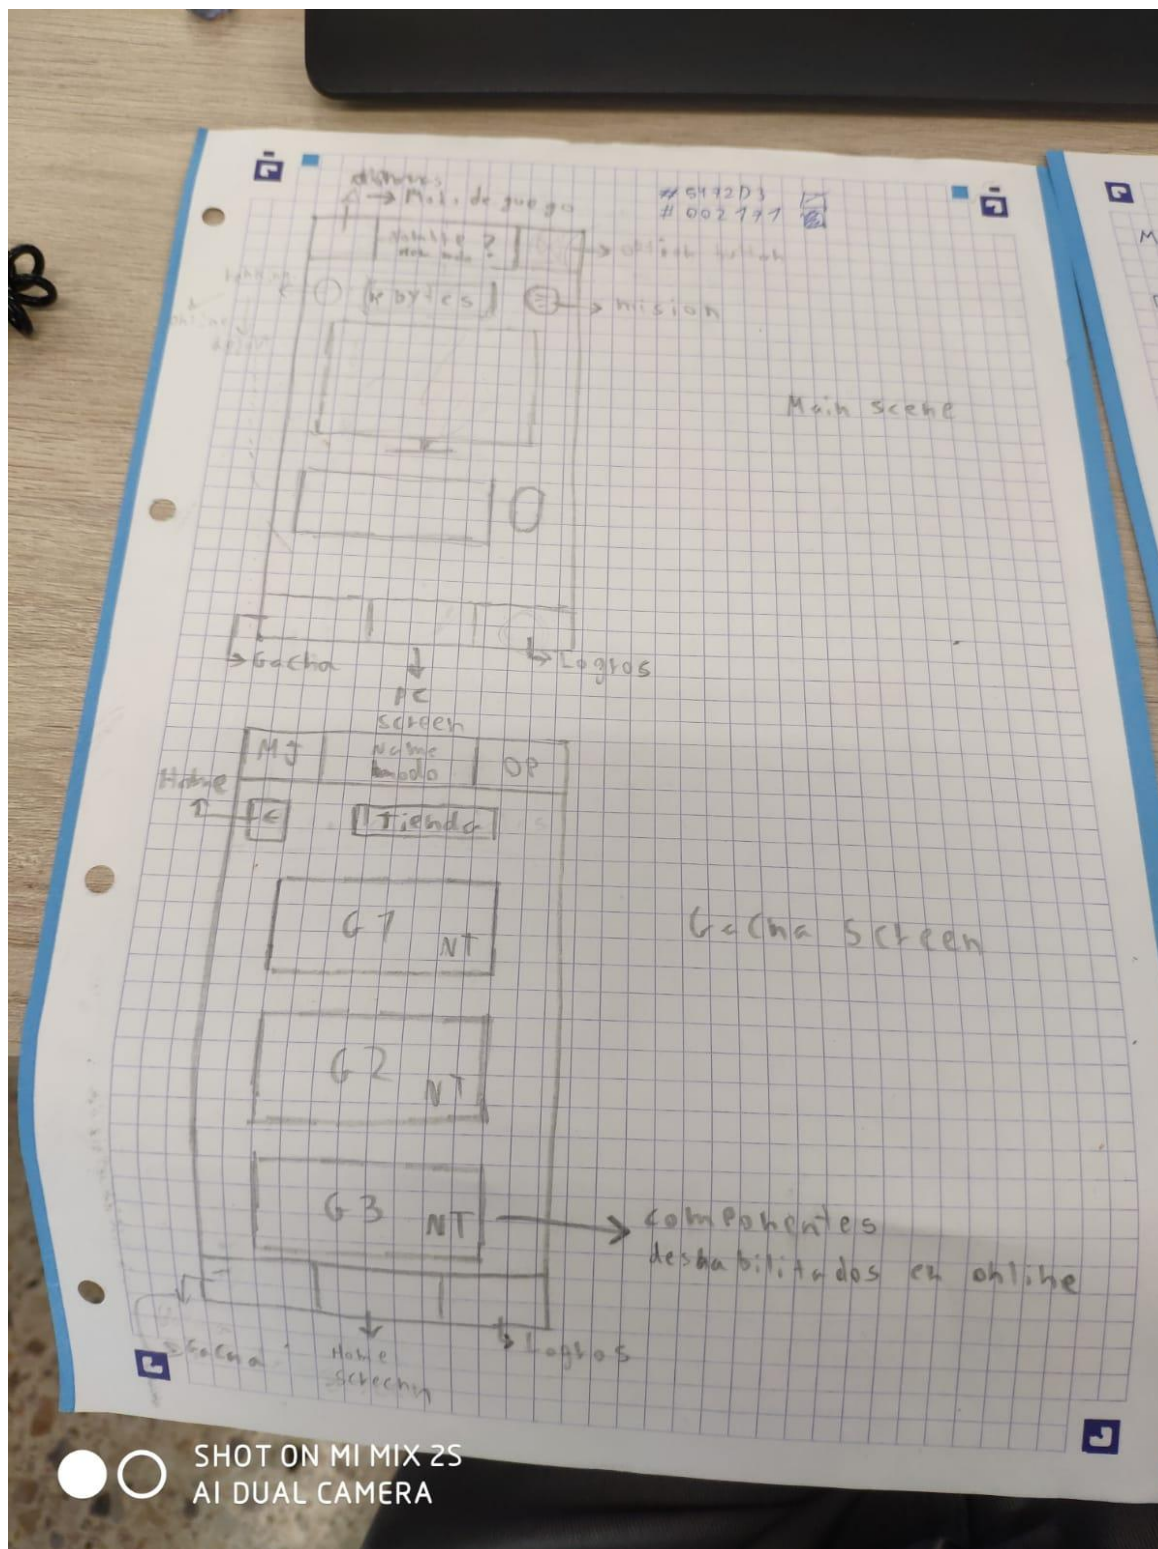 → Modo de guego
#5472D3
#002171
Nombre ?
→ option button
Nº bytes
→ mision
Main scene
→ Gacha
PC
screen
→ Logros
MJ
Name
modo
OP
Home
←
Tienda
G1
NT
Gacha Screen
G2
NT
G3
NT
componentes
deshabilitados en online
Gacha
Home
screenn
→ Logros
SHOT ON MI MIX 2S
AI DUAL CAMERA